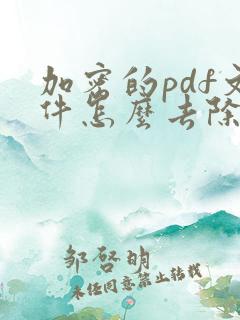 加密的pdf文
件怎麼去除
邹啓明
未经同意禁止转载